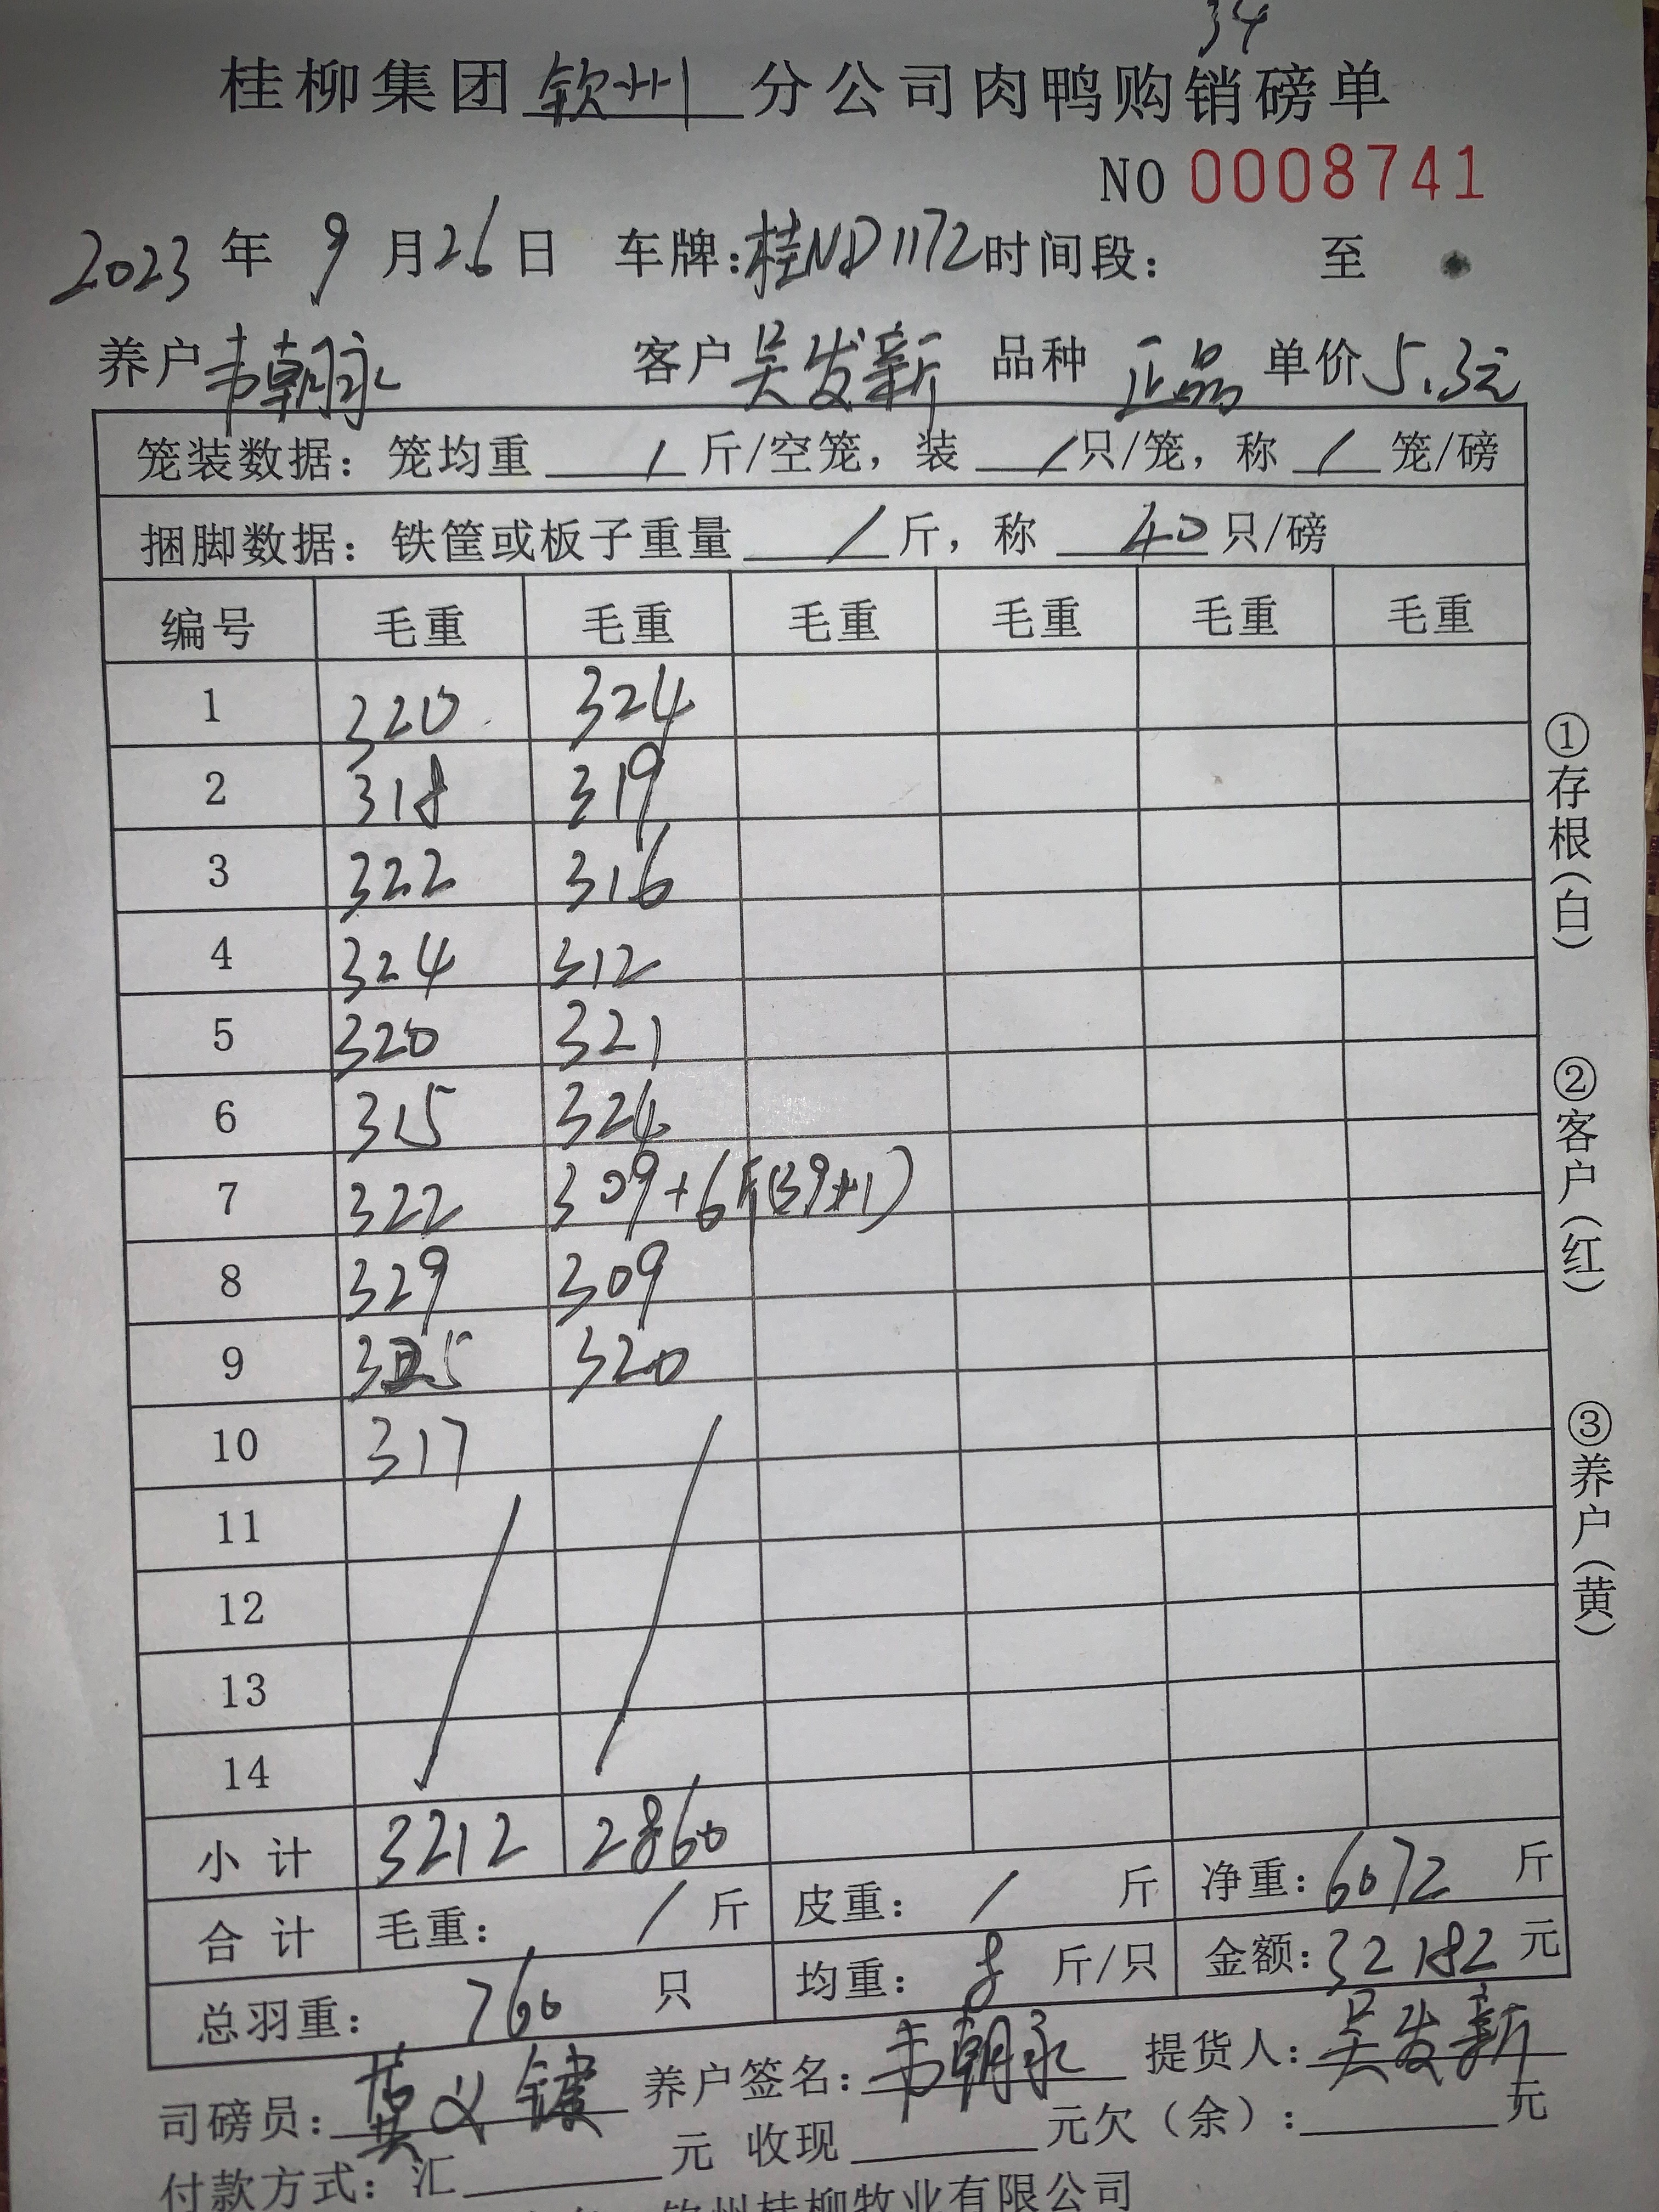 34
桂柳集团钦州分公司肉鸭购销磅单
NO 0008741
2023年9月26日 车牌:桂ND1172时间段: 至
养户韦朝永 客户吴发新 品种 正品 单价5.3元
笼装数据: 笼均重 / 斤/空笼, 装 / 只/笼, 称 / 笼/磅
捆脚数据: 铁筐或板子重量 / 斤, 称 40 只/磅
编号 毛重 毛重 毛重 毛重 毛重 毛重
1 320 324
2 318 319
3 322 316
4 324 312
5 320 321
6 315 324
7 322 309+6斤(39+1)
8 329 309
9 325 320
10 317
11
12
13
14
小计 3212 2860
合计 毛重: / 斤 皮重: / 斤 净重: 6072 斤
总羽重: 760 只 均重: 8 斤/只 金额: 32182 元
司磅员: 莫义键 养户签名: 韦朝永 提货人: 吴发新
付款方式: 汇 元 收现 元欠(余): 元
钦州桂柳牧业有限公司
①存根(白)
②客户(红)
③养户(黄)